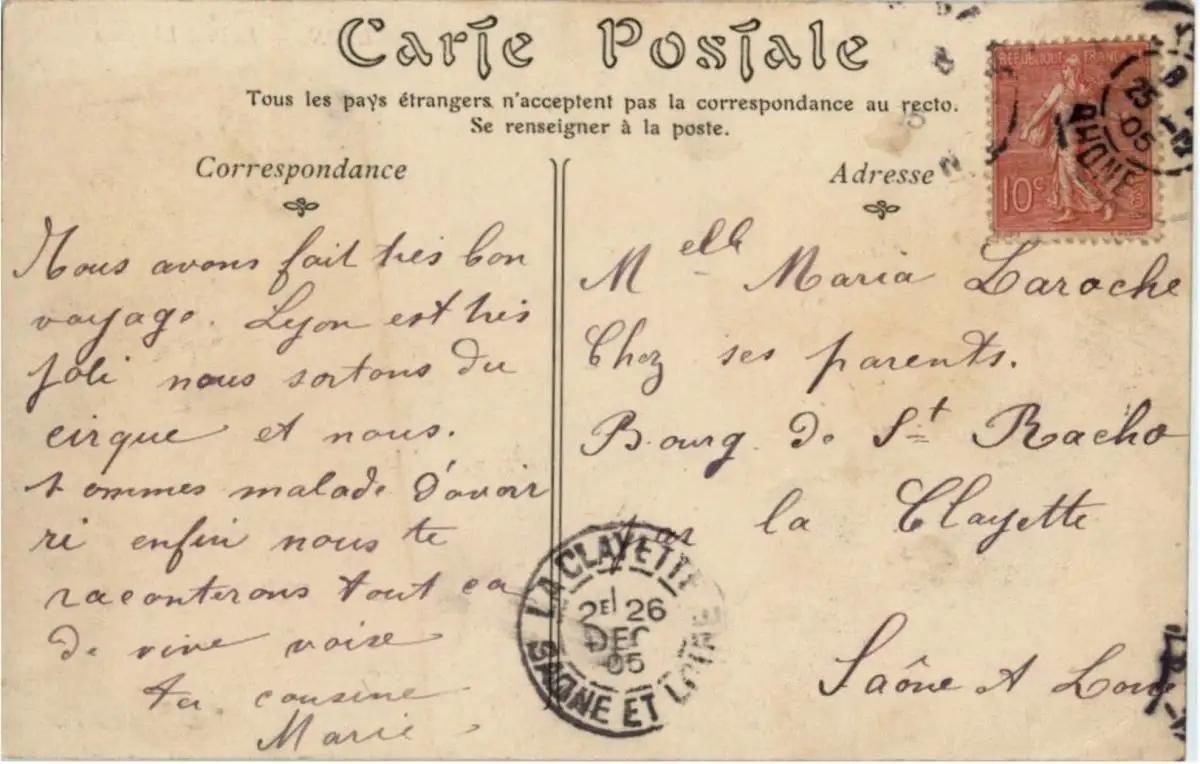 Carte Postale
Tous les pays étrangers n'acceptent pas la correspondance au recto.
Se renseigner à la poste.
Correspondance
Nous avons fait très bon
voyage. Lyon est très
joli nous sortons du
cirque et nous.
sommes malade d'avoir
ri enfin nous te
raconterons tout ça
de vive voixe
ta cousine
Marie
Adresse
Melle Maria Laroche
Chez ses parents.
Bourg de St Racho
par la Clayette
Saône et Loire
REPUBLIQUE FRANCAISE
10c
25
05
RHONE
LA CLAYETTE
2E 26
DEC
05
SAONE ET LOIRE